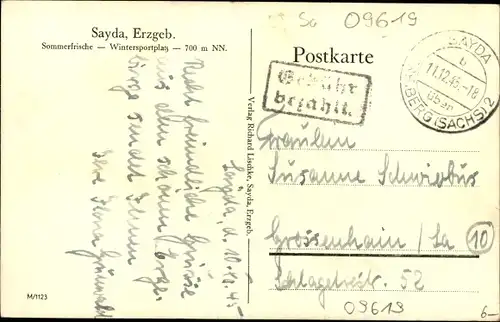 Sa 09619
Sayda, Erzgeb.
Sommerfrische — Wintersportplatz — 700 m NN.
Postkarte
SAYDA
b
11.12.45.-18
über
BERG (SACHS) 2
Gebühr
bezahlt.
Sayda, d. 10.12.45
Recht freundliche Grüsse
aus dem schönen Erzge-
birge sendet Ihnen
Ihre
Verlag Richard Lischke, Sayda, Erzgeb.
Fräulein
Susanne Schwiebus
Grossenhain / Sa
10
Schlageterstr. 52
M/1123
09619
6-